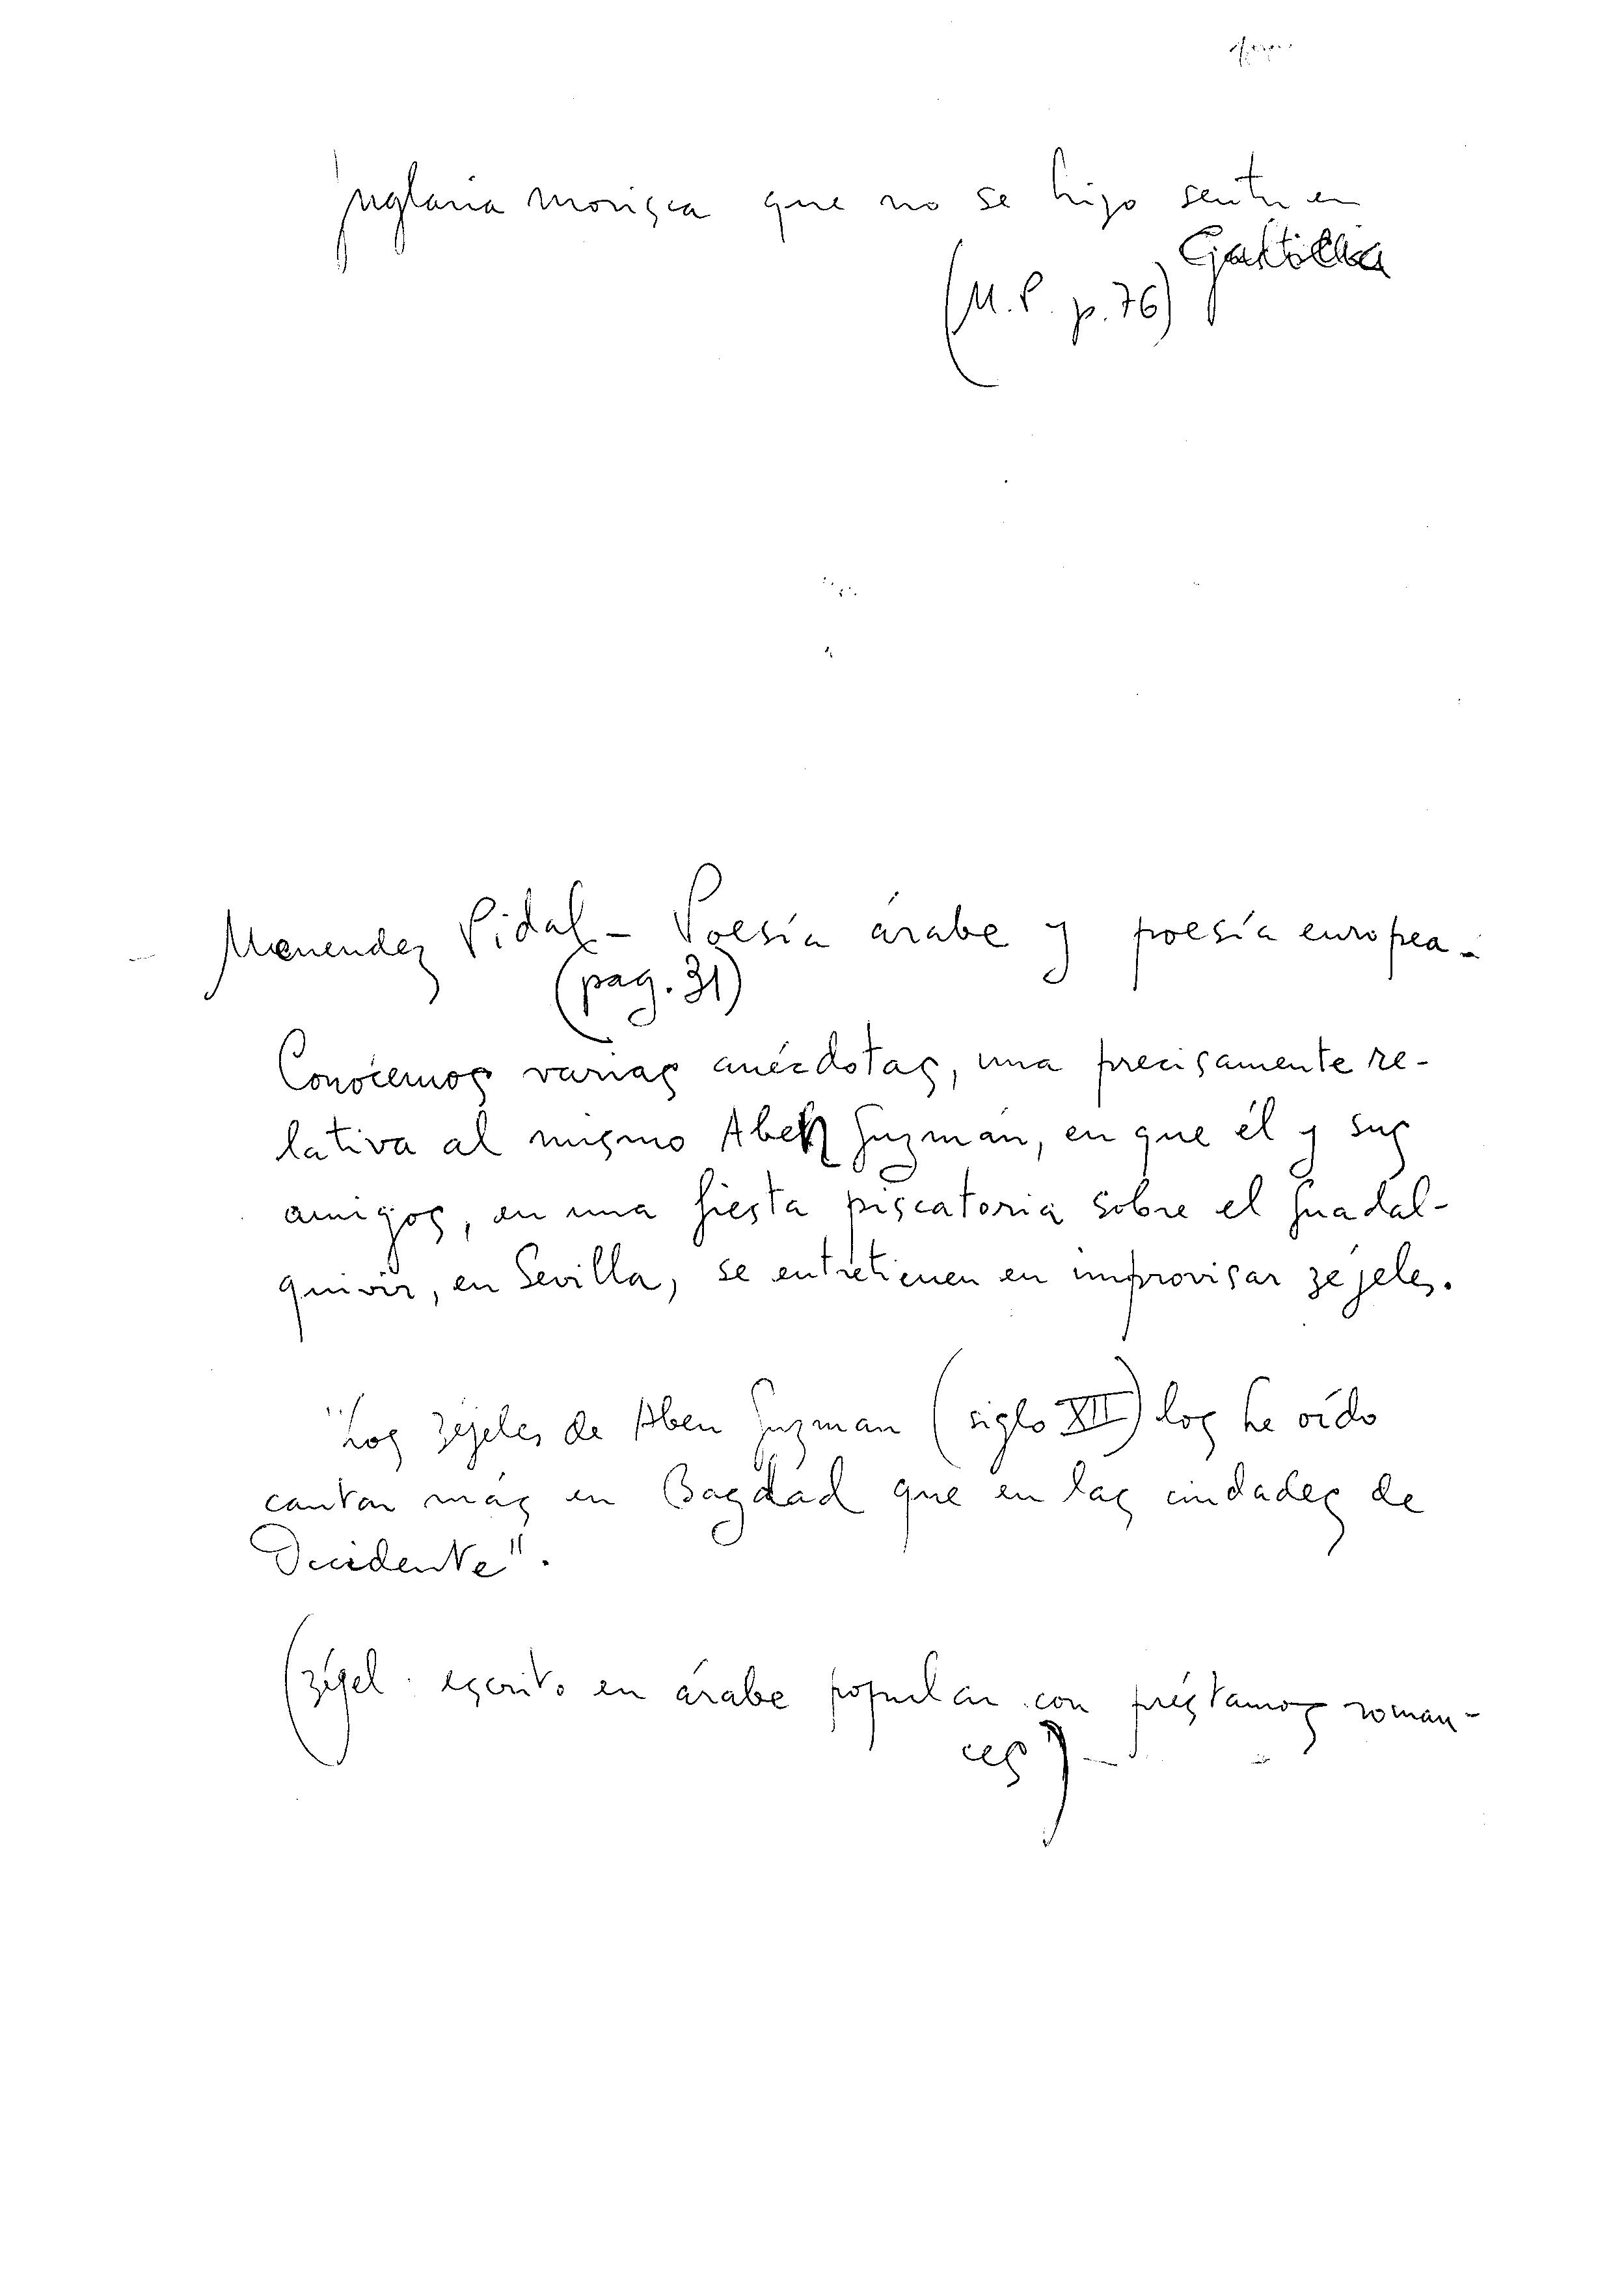 juglaria morisca que no se hizo sentir en
Castilla
(M.P. p. 76)
Menendez Pidal - Poesía árabe y poesía europea -
(pag. 31)
Conocemos varias anécdotas, una precisamente re-
lativa al mismo Aben Guzmán, en que él y sus
amigos, en una fiesta piscatoria sobre el Guadal-
quivir, en Sevilla, se entretienen en improvisar zejeles.
"Los zéjeles de Aben Guzman (siglo XII) los he oído
cantar más en Bagdad que en las ciudades de
Occidente".
(zéjel. escrito en árabe popular con préstamos roman-
ces) -